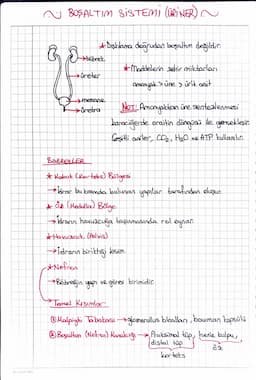 BOŞALTIM SİSTEMİ (ÜRİNER)
★ Dışkılama doğrudan boşaltım değildir.
böbrek
★ Maddelerin zehir miktarları
üreter
amonyak > üre > ürik asit
mesane
üretra
NOT: Amonyaktan üre sentezlenmesi
karaciğerde ornitin döngüsü ile gerçekleşir.
Çeşitli aa'ler, CO₂, H₂O ve ATP kullanılır.
BÖBREKLER
★ Kabuk (Korteks) Bölgesi
İdrar bu kısımda bulunan yapılar tarafından oluşur
★ Öz (Medulla) Bölge
İdrarın havuzcuğa taşınmasında rol oynar.
★ Havuzcuk (Pelvis)
İdrarın biriktiği kısım
★ Nefron
Böbreğin yapı ve görev birimidir.
Temel Kısımlar
① Malpighi Tabakası → glomerulus kılcalları, bowman kapsülü
② Boşaltım (Nefron) Kanalcığı → Proksimal tüp, henle kulpu,
distal tüp
öz
korteks